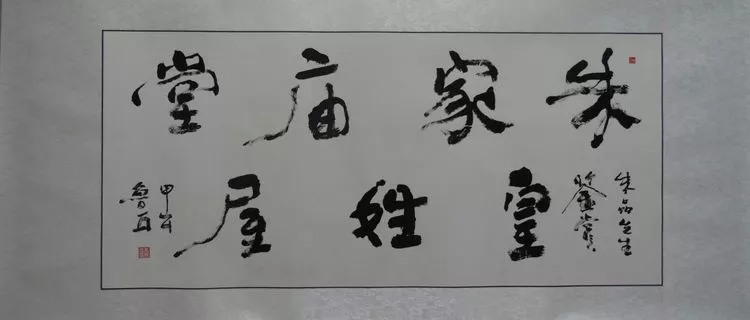 朱家庙堂
皇姓屋
朱品先生
鉴赏
甲午
鲁